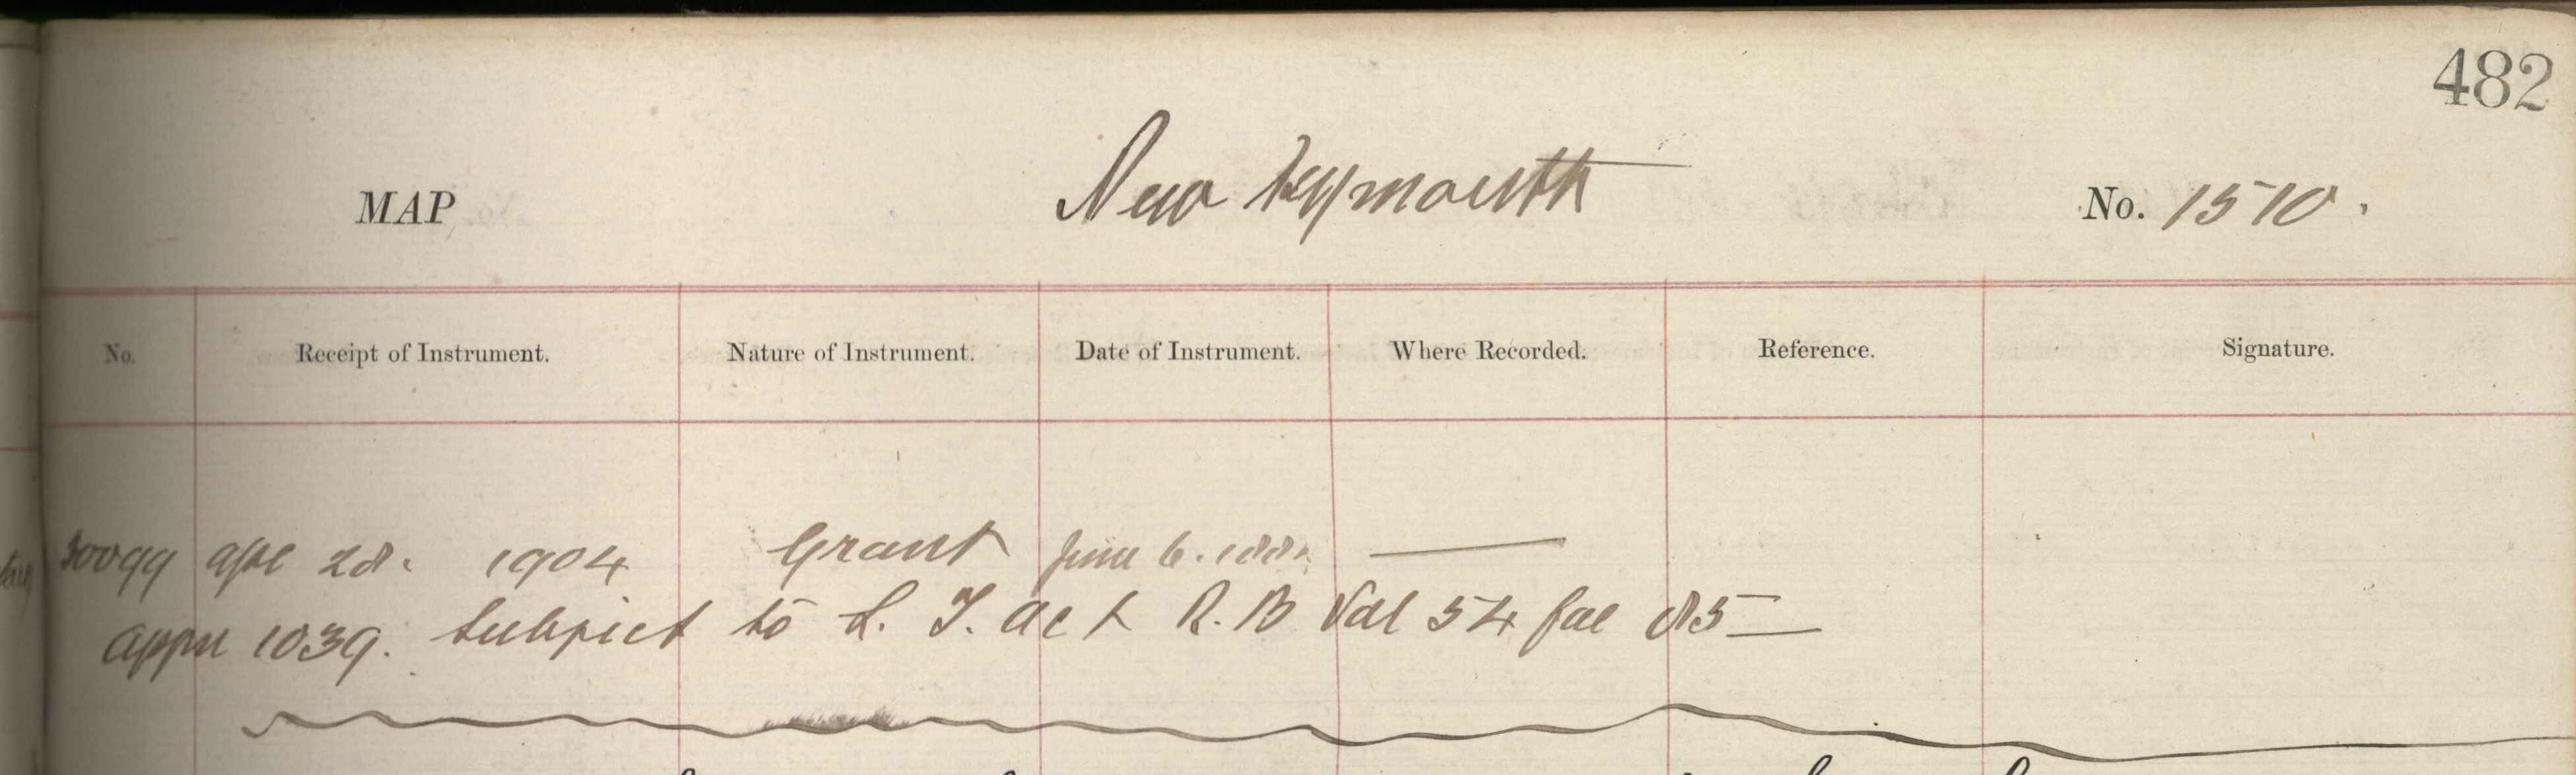 482
MAP New Plymouth No. 1510.
No. Receipt of Instrument. Nature of Instrument. Date of Instrument. Where Recorded. Reference. Signature.
30099 Apl 28. 1904 Grant June 6. —
Appn 1039. Subject to L. T. Act R. B Vol 54 fol 85 —